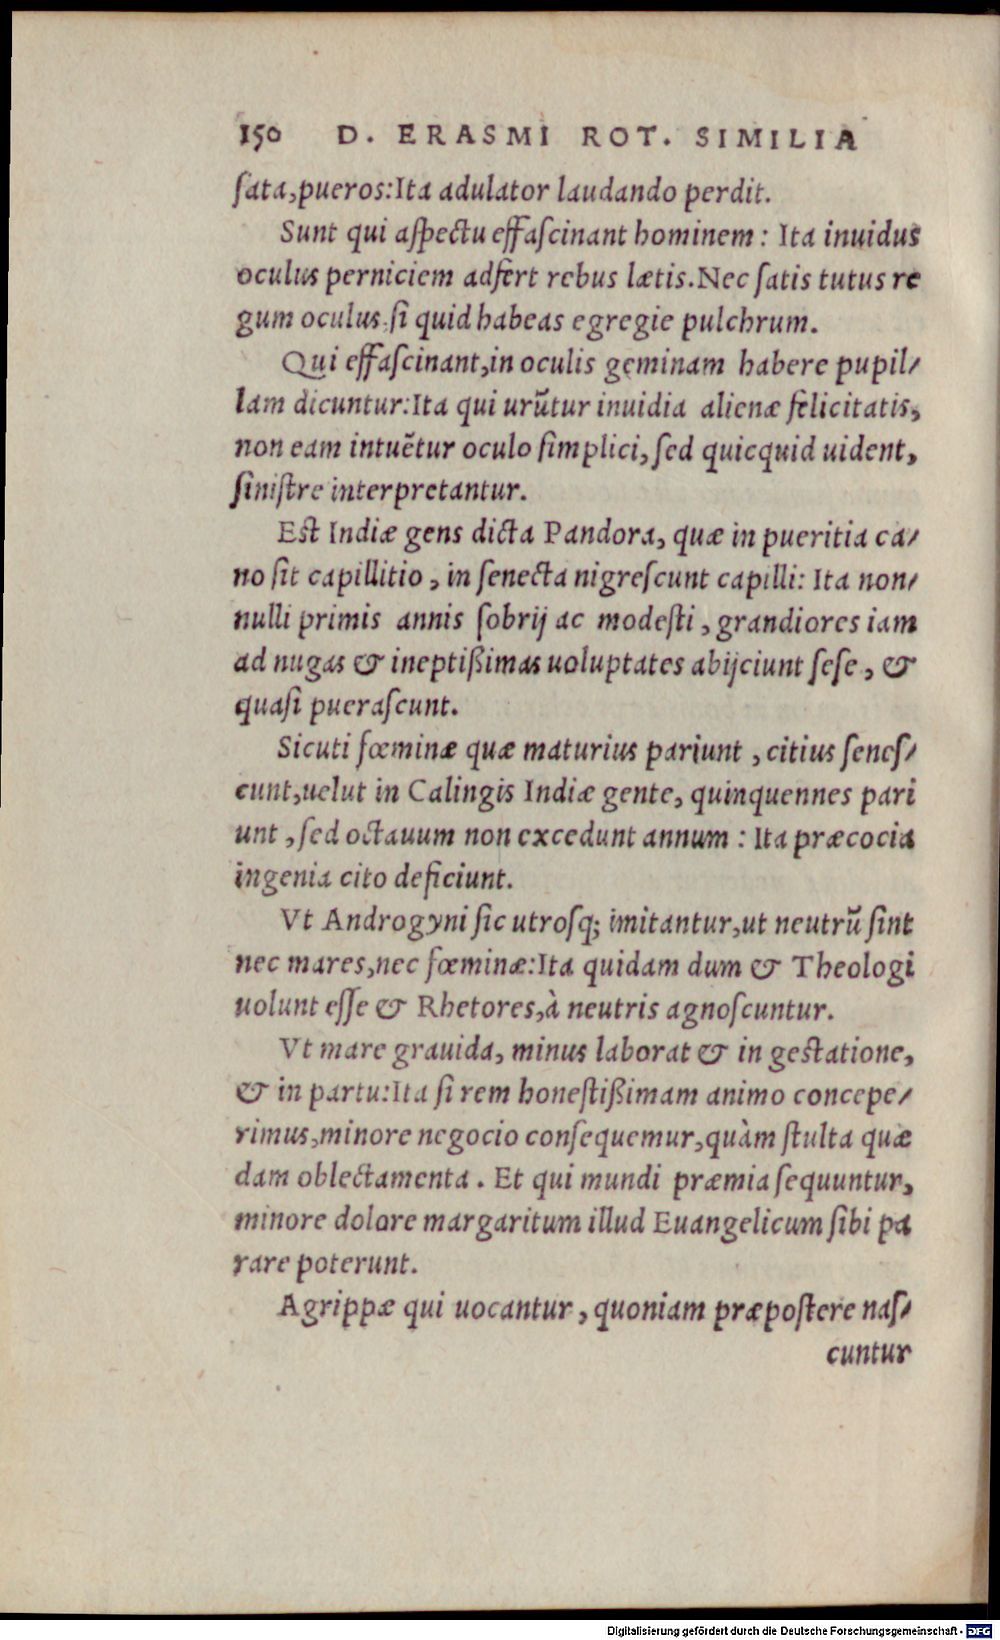 150 D. ERASMI ROT. SIMILIA
ſata,pueros:Ita adulator laudando perdit.
Sunt qui aſpectu effaſcinant hominem : Ita inuidus
oculus perniciem adfert rebus lætis.Nec ſatis tutus re
gum oculus,ſi quid habeas egregie pulchrum.
Qui effaſcinant,in oculis geminam habere pupil/
lam dicuntur:Ita qui urũtur inuidia alienæ felicitatis,
non eam intuẽtur oculo ſimplici, ſed quicquid uident,
ſiniſtre interpretantur.
Eſt Indiæ gens dicta Pandora, quæ in pueritia ca/
no ſit capillitio , in ſenecta nigreſcunt capilli: Ita non/
nulli primis annis ſobrij ac modeſti , grandiores iam
ad nugas & ineptißimas uoluptates abijciunt ſeſe , &
quaſi pueraſcunt.
Sicuti fœminæ quæ maturius pariunt , citius ſeneſ/
cunt,uelut in Calingis Indiæ gente, quinquennes pari
unt , ſed octauum non excedunt annum : Ita præcocia
ingenia cito deficiunt.
Vt Androgyni ſic utroſq; imitantur,ut neutrũ ſint
nec mares,nec fœminæ:Ita quidam dum & Theologi
uolunt eſſe & Rhetores,à neutris agnoſcuntur.
Vt mare grauida, minus laborat & in geſtatione,
& in partu:Ita ſi rem honeſtißimam animo concepe/
rimus,minore negocio conſequemur,quàm ſtulta quæ
dam oblectamenta . Et qui mundi præmia ſequuntur,
minore dolore margaritum illud Euangelicum ſibi pa
rare poterunt.
Agrippæ qui uocantur , quoniam præpoſtere naſ/
cuntur
Digitalisierung gefördert durch die Deutsche Forschungsgemeinschaft - DFG